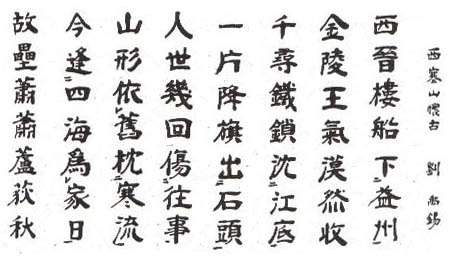 西塞山懐古 劉禹錫
西晉樓船下益州
金陵王氣漠然收
千尋鐵鎖沈江底
一片降旗出石頭
人世幾回傷往事
山形依舊枕寒流
今逢四海爲家日
故壘蕭蕭蘆荻秋